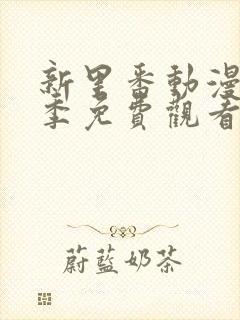 新里番動漫
季免費觀看
蔚藍奶茶